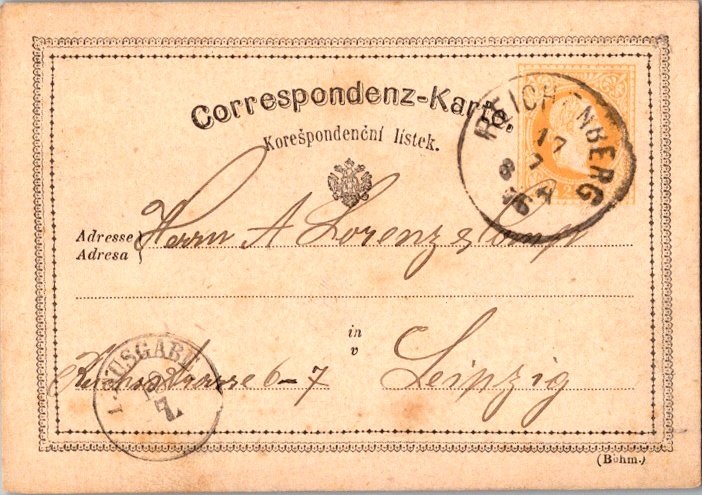 Correspondenz-Karte.
Korešpondenční lístek.
REICHENBERG
17
7
8
Adresse
Adresa
Herrn A Lorenz & Comp
in
v
Reichsstrasse 6-7
Leipzig
AUSGAB
7
(Böhm.)